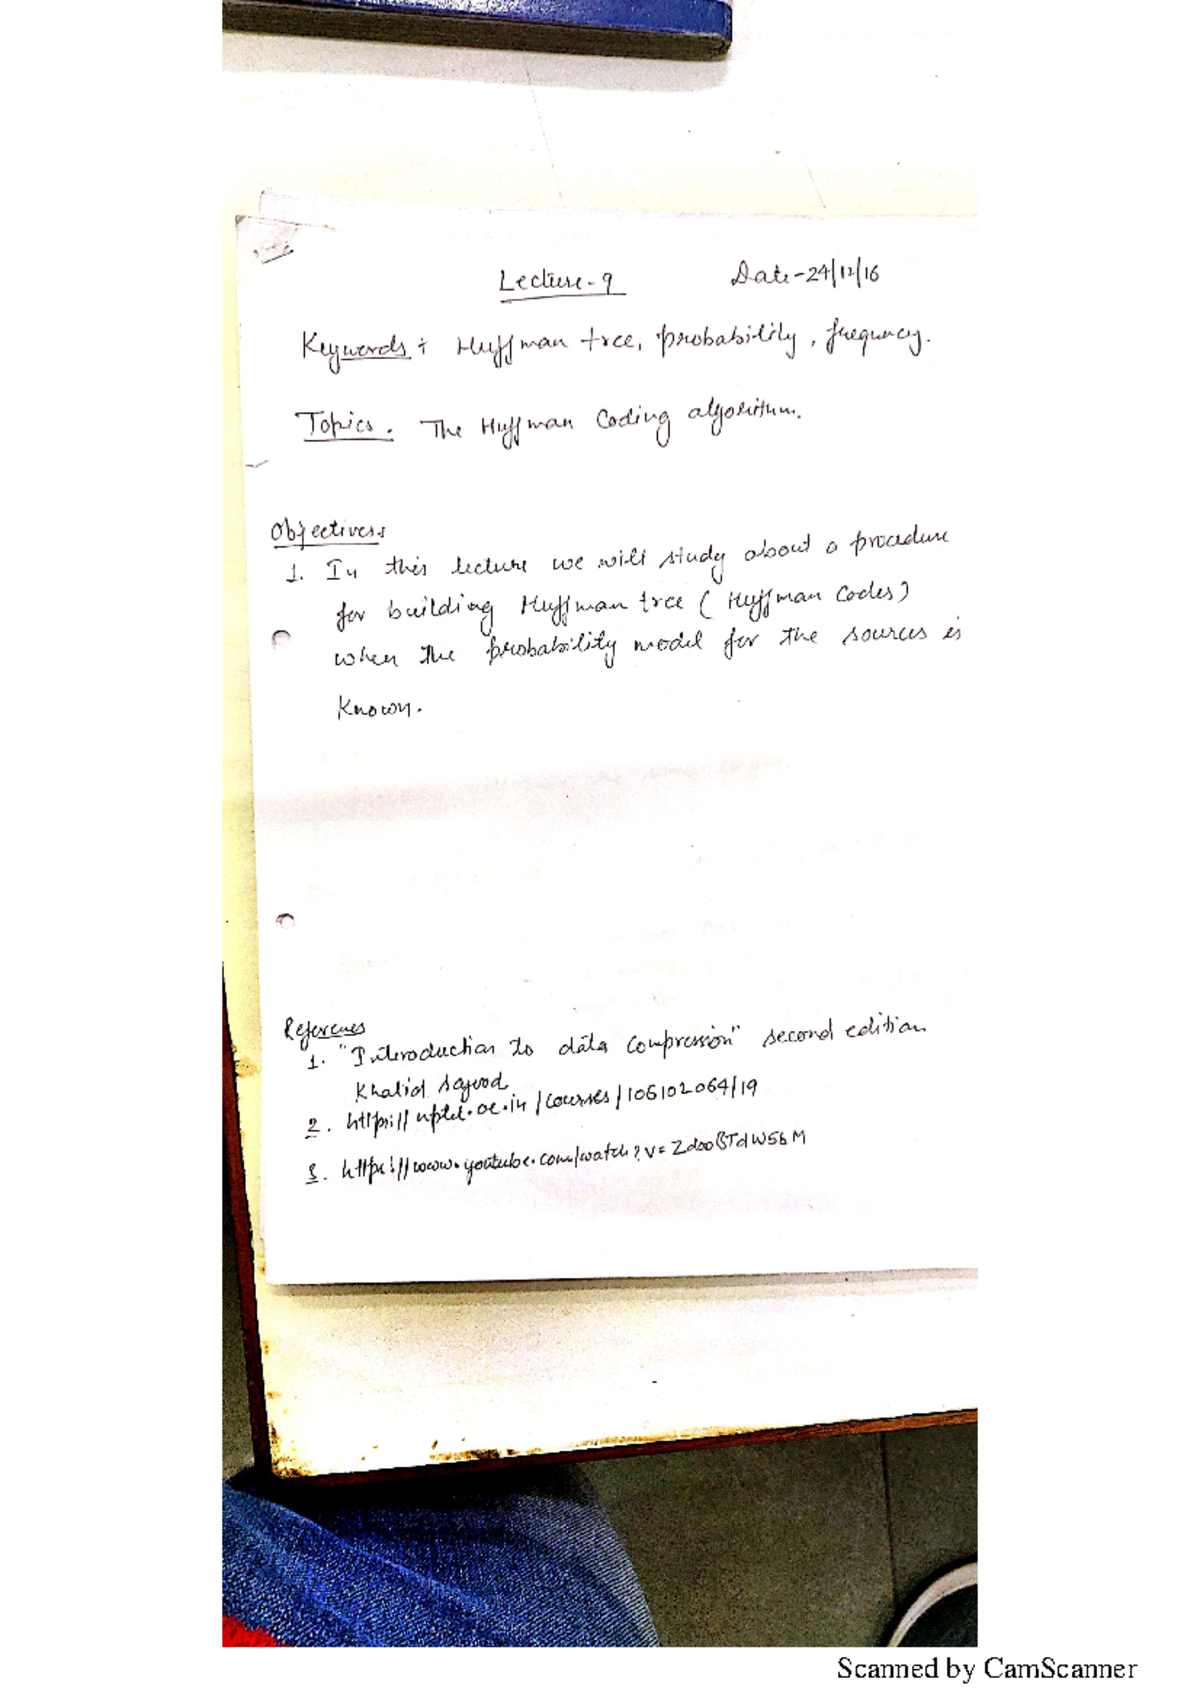 Lecture-9 Date-24/12/16
Keywords: Huffman tree, probability, frequency.
Topics. The Huffman Coding algorithm.
Objectives:
1. In this lecture we will study about a procedure
for building Huffman tree (Huffman Codes)
when the probability model for the sources is
known.
References
1. "Introduction to data compression" second edition
Khalid Sayood
2. https://nptel.ac.in/courses/106102064/19
3. https://www.youtube.com/watch?v=
Scanned by CamScanner